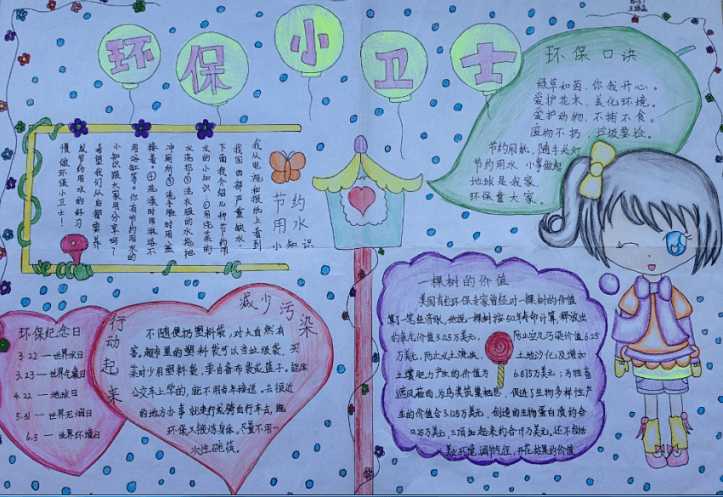 环保小卫士
环保口诀
绿草如茵，你我开心。
爱护花木，美化环境。
爱护动物，不捕不食。
废物不扔，垃圾要捡。
节约用纸，随手关灯
节约用水
地球是我家
环保靠大家。
节约
用水
小知识
我从电视和报纸上看到
我国西部严重缺水，
下面我介绍几种节约用
水的小知识：①用洗菜的
水浇花②洗衣服水拖地
冲厕所③洗手脸时用盆
接着。④洗澡时用淋浴不
用浴缸等。你有节约用水的
小知识跟大家分享吗？
希望我们从自身培养
成节约用水的好习
惯做环保小卫士！
减少污染
行动起来
不随便扔塑料袋，对大自然有
害，超市里的塑料袋可以当垃圾袋，买
菜时少用塑料袋，拿自备布袋或篮子。
公交车上学的，能不用每年接送。去很近
的地方办事就走行或骑自行车去，既
环保又锻炼身体。尽量不用一
次性碗筷。
环保纪念日
3.22—世界水日
3.23—世界气象日
4.22—地球日
5.31—世界无烟日
6.5—世界环境日
一棵树的价值
美国有位环保专家曾经对一棵树的价值
算了一笔经济账，他说一棵树按50年寿命计算，释放出
的氧气价值3.25万美元，防止空气污染价值6.25
万美元，防止水土流失、土地沙化及增加
土壤肥力产生的价值为6.875万美元；为牲畜
遮风蔽雨，为鸟类筑巢栖息，促进了生物多样性产
生的价值合3.125万美元，创造的生物蛋白质约合
0.25万美元，三项加起来约合19万美元，还不包括
美化环境，调节气候，开花结果的价值